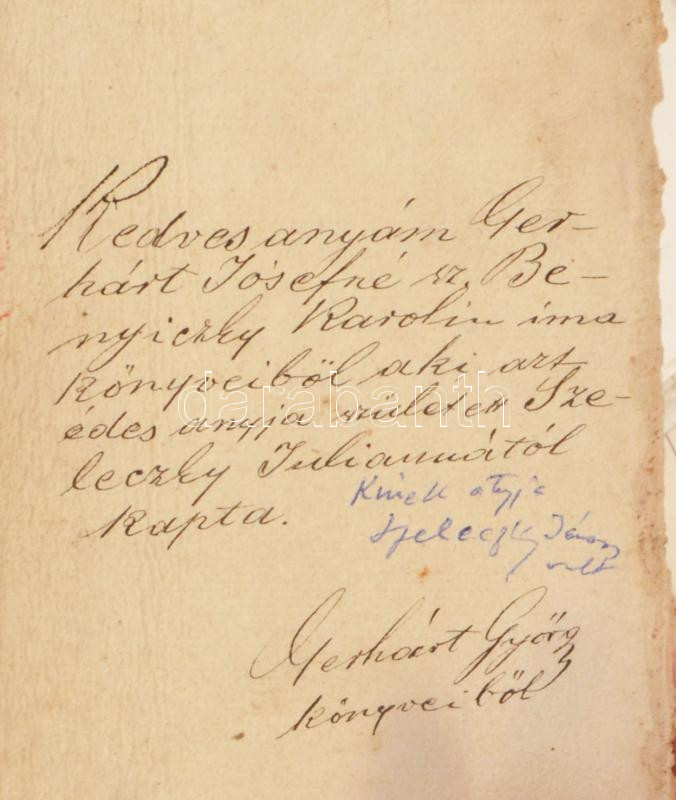 Kedves anyám Ger-
hárt Jósefné sz. Be-
nyiczky Karolin ima
könyveiből aki azt
édes anyja született Sze-
leczky Juliannától
kapta.
Kinek atyja
Szeleczky János
volt
Gerhárt György
könyveiből
darabanth